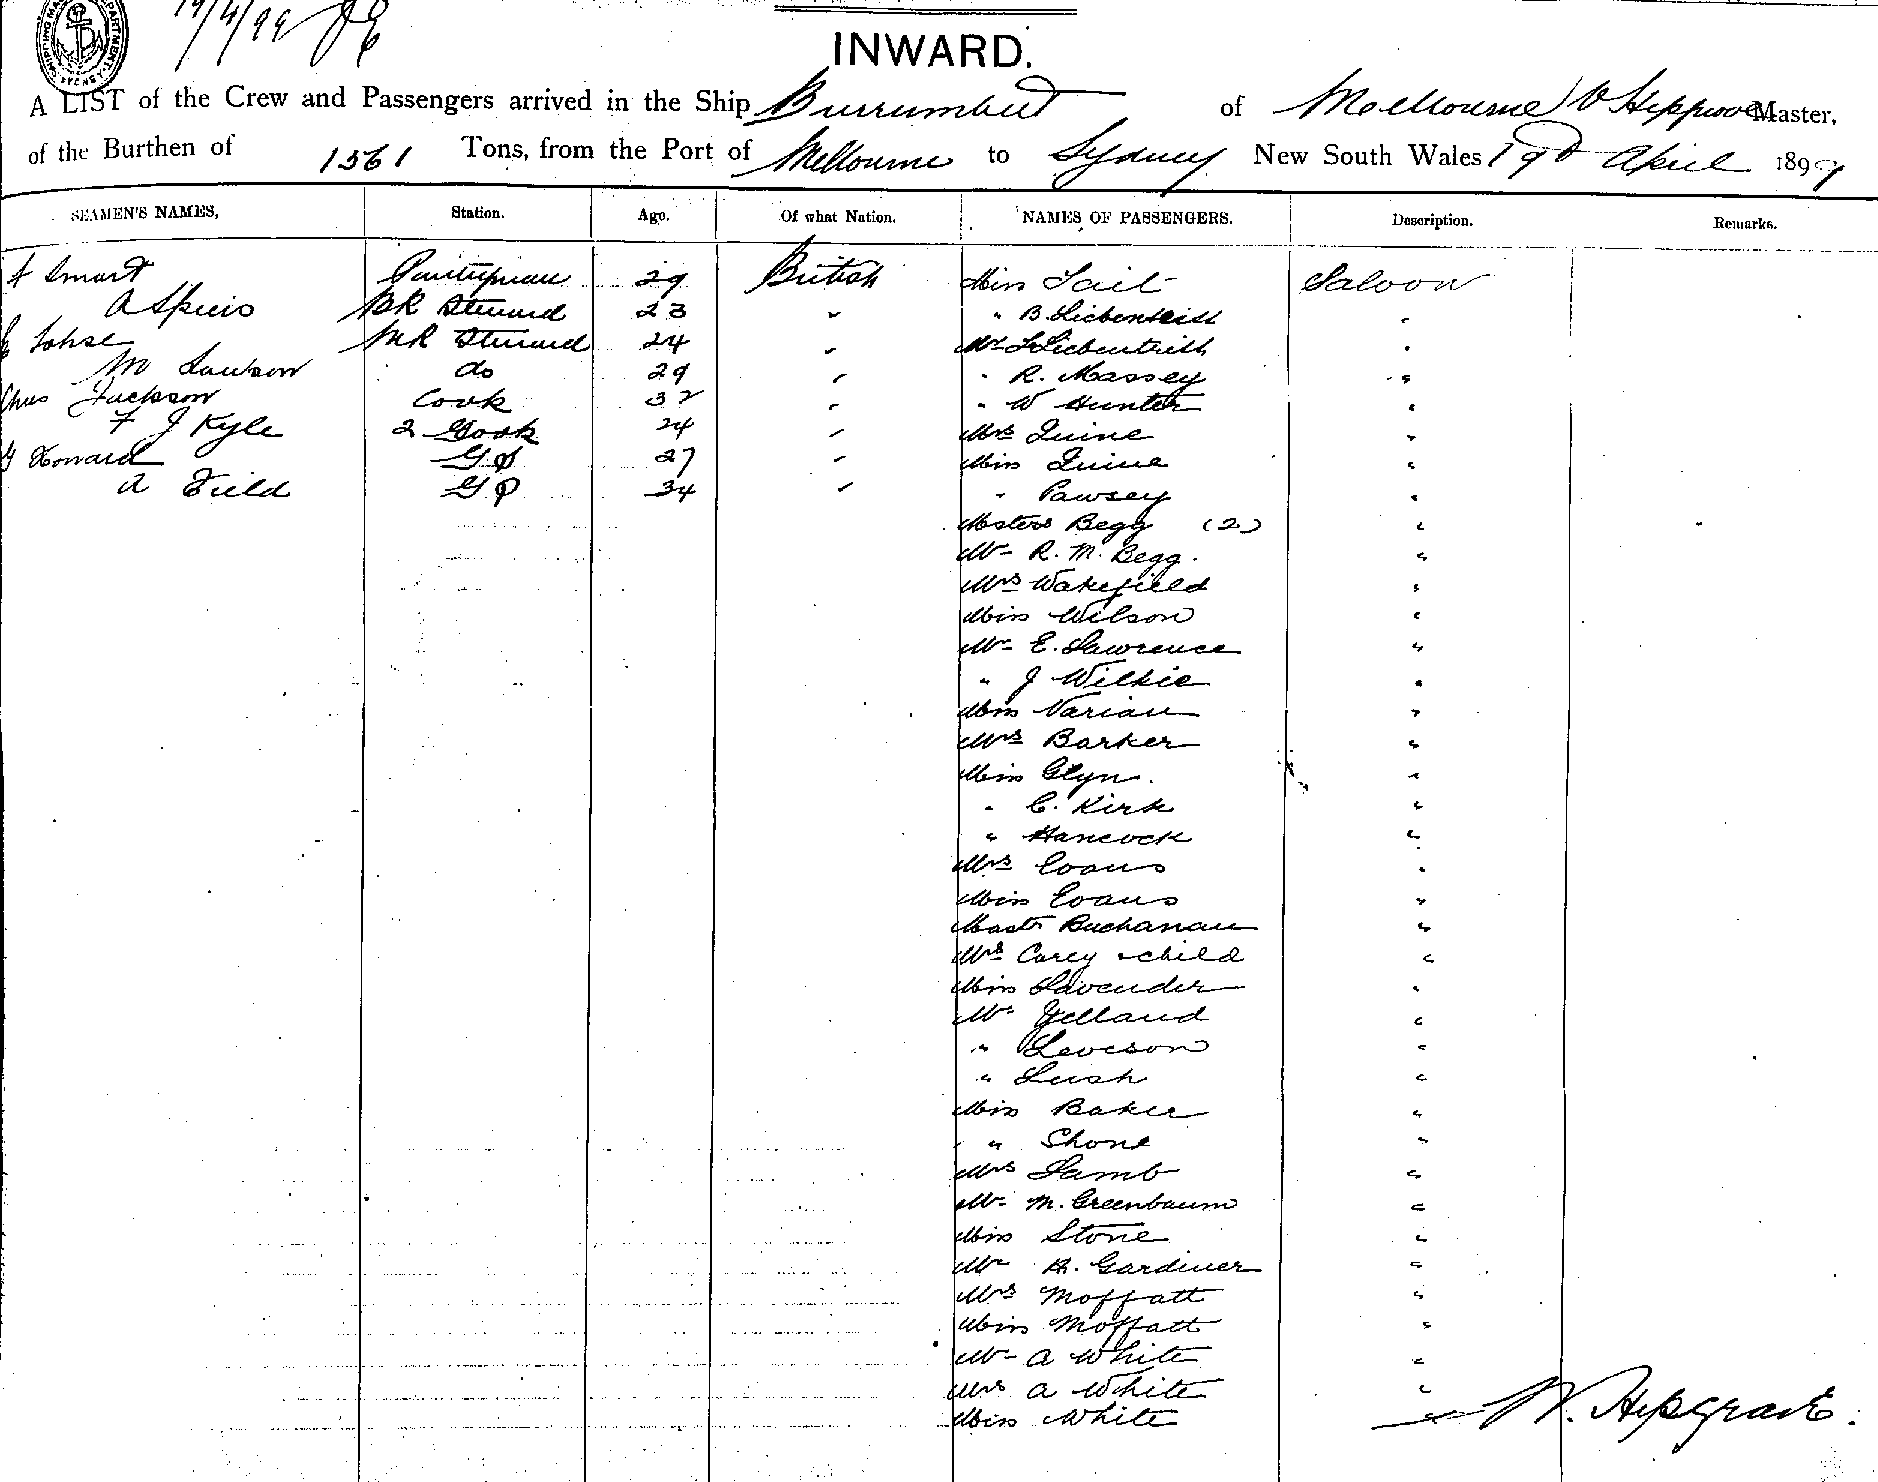 19/4/99
INWARD.
A LIST of the Crew and Passengers arrived in the Ship Burrumbeet of Melbourne Master,
of the Burthen of 1561 Tons, from the Port of Melbourne to Sydney New South Wales 19th April 1899
SEAMEN'S NAMES, Station. Age. Of what Nation. NAMES OF PASSENGERS. Description. Remarks.
Smart Pantryman 29 British Miss Tait Saloon
A Speirs BR Steward 23 " " B. Liebentritt "
Lohse MR Steward 24 " Mr L Liebentritt "
M Lawson do 29 " " R. Massey "
Chas Jackson Cook 32 " " W Hunter "
F J Kyle 2 Cook 24 " Mrs Quine "
Howard 27 " Miss Quine "
A Field 34 " " Pawsey "
Masters Begg (2) "
Mr R. M. Begg. "
Mrs Wakefield "
Miss Wilson "
Mr E. Lawrence "
" J Wilkie "
Miss Varian "
Mrs Barker "
Miss Glyn. "
" C. Kirk "
" Hancock "
Mrs Evans "
Miss Evans "
Mastr Buchanan "
Mrs Carey & child "
Miss Lavender "
Mr Yelland "
" Leveson "
" Lush "
Miss Baker "
" Shone "
Mrs Lamb "
Mr M. Greenbaum "
Miss Stone "
Mr Gardiner "
Mrs Moffatt "
Miss Moffatt "
Mr A White "
Mrs A White "
Miss White "